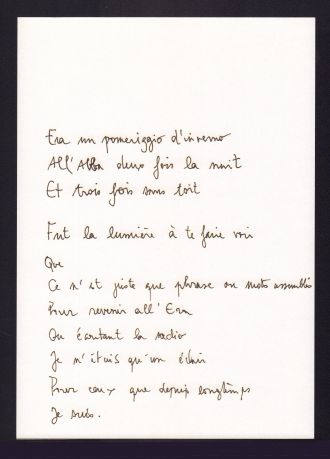 Era un pomeriggio d'inverno
All'Alba deux fois la nuit
Et trois fois sous toit
Fut la lumière à te faire voir
Que
Ce n'est juste que phrase ou mots assemblés
Pour revenir all'Era
Ou écoutant la radio
Je n'étais qu'un
Pour ceux que depuis longtemps
Je suis.